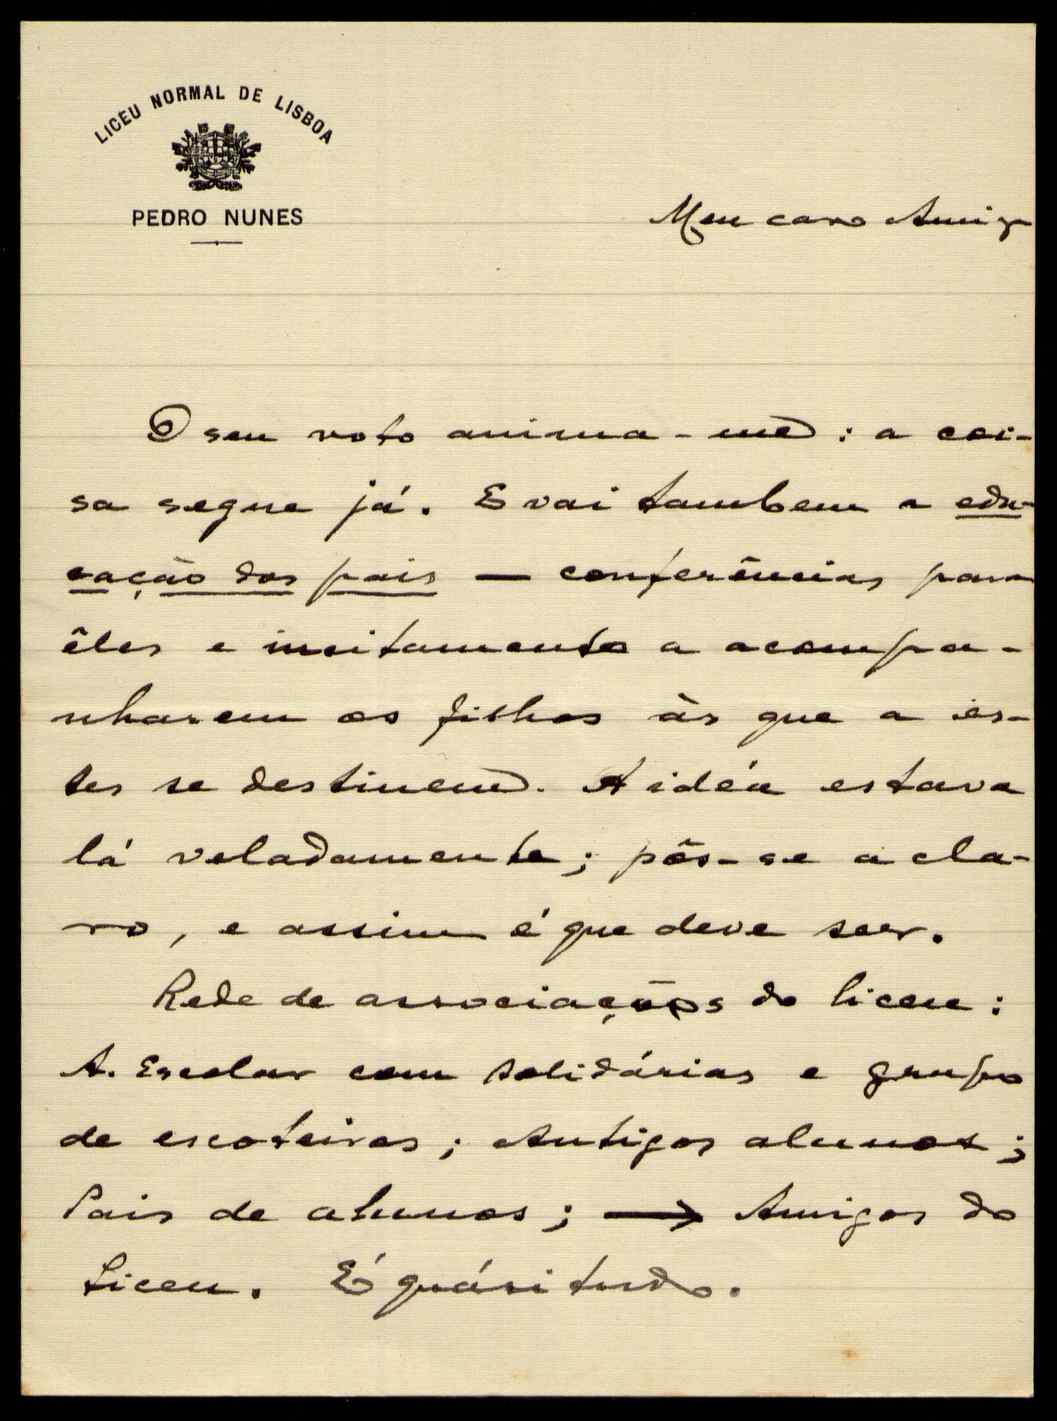 LICEU NORMAL DE LISBOA
PEDRO NUNES
Meu caro Amigo
O seu voto anima-me: a coi-
sa segue já. E vai tambem a edu-
cação dos pais — conferências para
êles e incitamento a acompa-
nharem os filhos às que a ês-
tes se destinem. A idéa estava
lá veladamente; pôs-se a cla-
ro, e assim é que deve ser.
Rede de associações do liceu:
A. Escolar com Solidárias e grupo
de escoteiros; Antigos alunos;
Pais de alunos; → Amigos do
Liceu. É quási tudo.